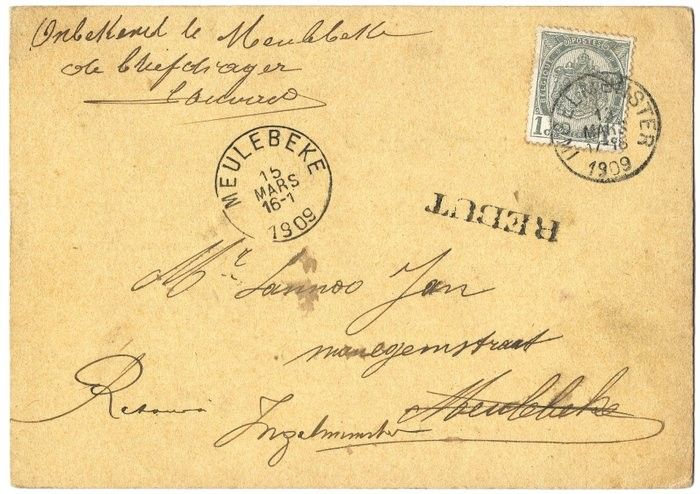 Onbekend te Meulebeke
de briefdrager
BELGIQUE POSTES
1c
INGELMUNSTER
MARS
1909
MEULEBEKE
15
MARS
16-1
1909
REBUT
Mr. Lannoo Jan
manegemstraat
Meulebeke
Retour
Ingelmunster